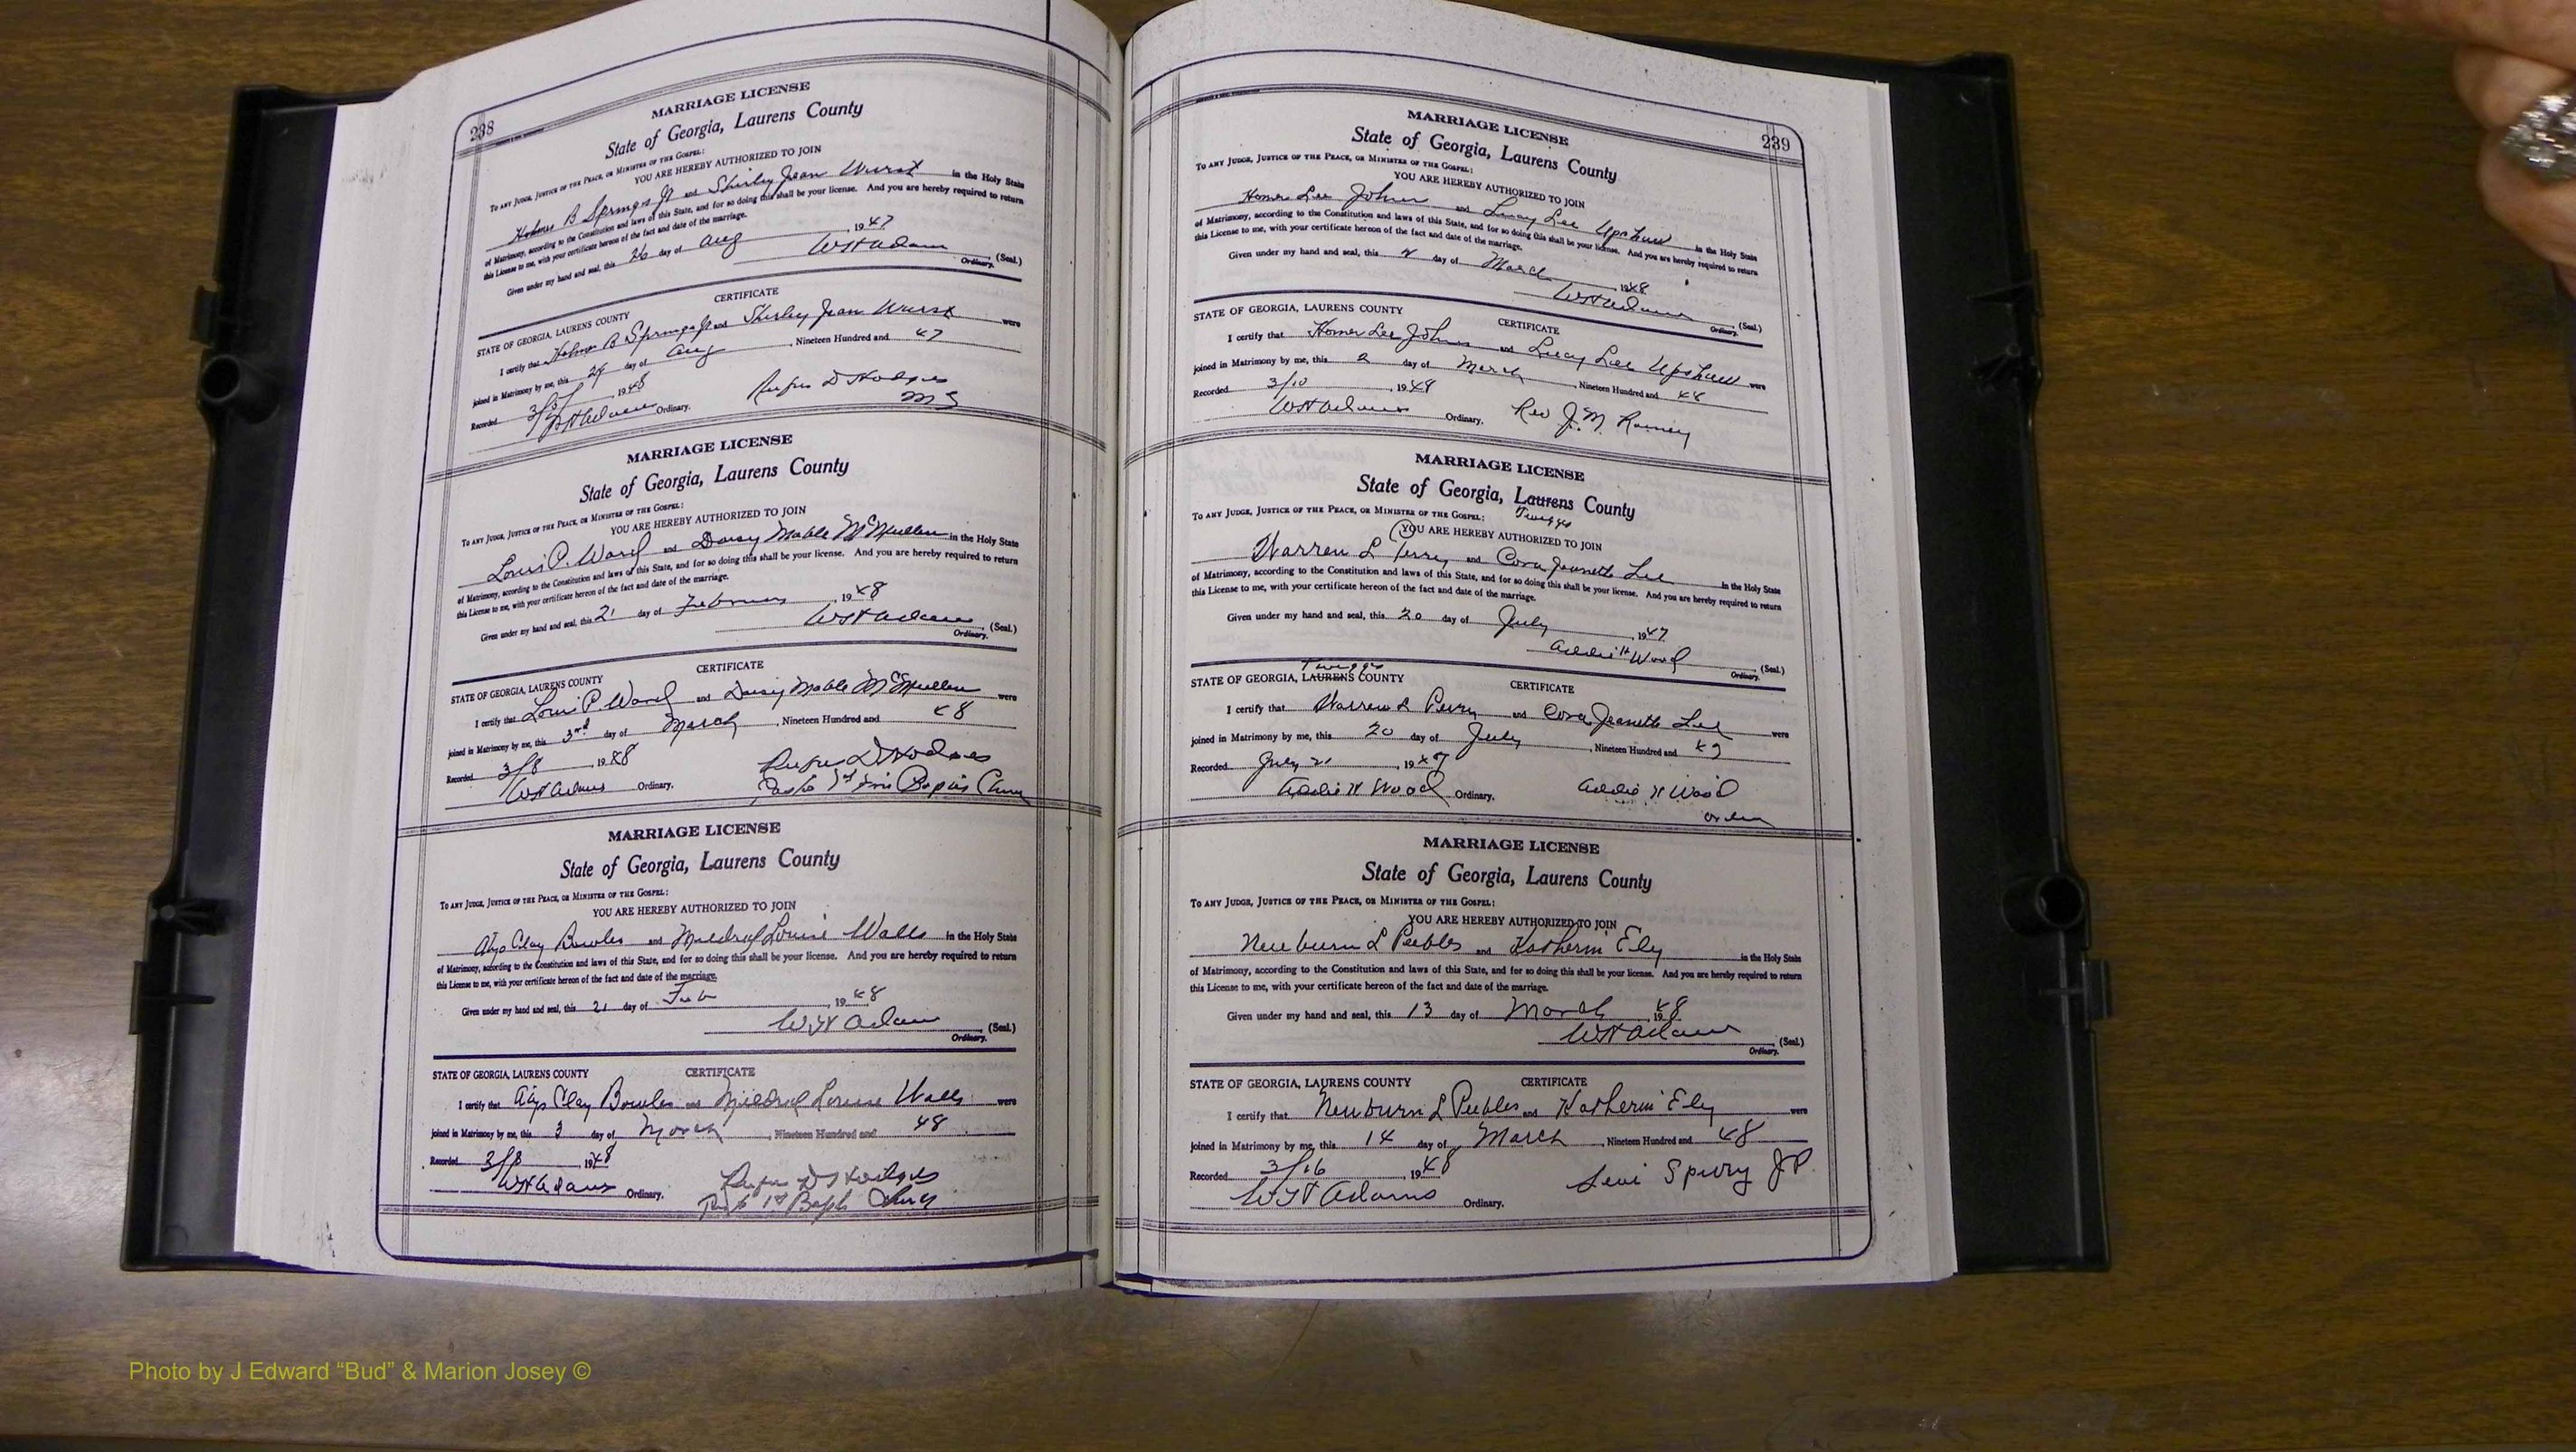 238
MARRIAGE LICENSE
State of Georgia, Laurens County
To any Judge, Justice of the Peace, or Minister of the Gospel:
YOU ARE HEREBY AUTHORIZED TO JOIN
Holmes B Springs Jr and Shirley Jean Wurst in the Holy State
of Matrimony, according to the Constitution and laws of this State, and for so doing this shall be your license. And you are hereby required to return
this License to me, with your certificate hereon of the fact and date of the marriage.
Given under my hand and seal, this 26 day of Aug 1947
WH Adams (Seal.)
Ordinary.
CERTIFICATE
STATE OF GEORGIA, LAURENS COUNTY
I certify that Holmes B Springs Jr and Shirley Jean Wurst were
joined in Matrimony by me, this day of Aug, Nineteen Hundred and 47
Recorded 1948 Rufus D Hodges
WH Adams Ordinary. MG
MARRIAGE LICENSE
State of Georgia, Laurens County
To any Judge, Justice of the Peace, or Minister of the Gospel:
YOU ARE HEREBY AUTHORIZED TO JOIN
Louis P. Ward and Daisy Mable McMullen in the Holy State
of Matrimony, according to the Constitution and laws of this State, and for so doing this shall be your license. And you are hereby required to return
this License to me, with your certificate hereon of the fact and date of the marriage.
Given under my hand and seal, this 21 day of February, 1948
WH Adams (Seal.)
Ordinary.
CERTIFICATE
STATE OF GEORGIA, LAURENS COUNTY
I certify that Louis P. Ward and Daisy Mable McMullen were
joined in Matrimony by me, this 3rd day of March, Nineteen Hundred and 48
Recorded 3/8, 1948 Rufus D Hodges
WH Adams Ordinary. 1st
MARRIAGE LICENSE
State of Georgia, Laurens County
To any Judge, Justice of the Peace, or Minister of the Gospel:
YOU ARE HEREBY AUTHORIZED TO JOIN
Clay Bowles and Mildred Louise Walls in the Holy State
of Matrimony, according to the Constitution and laws of this State, and for so doing this shall be your license. And you are hereby required to return
this License to me, with your certificate hereon of the fact and date of the marriage.
Given under my hand and seal, this 21 day of Feb, 1948
W.H Adams (Seal.)
Ordinary.
STATE OF GEORGIA, LAURENS COUNTY CERTIFICATE
I certify that Clay Bowles and Mildred Louise Walls were
joined in Matrimony by me, this 3 day of March, Nineteen Hundred and 48
Recorded 3/8, 1948 Rufus D Hodges
WH Adams Ordinary. 1st
239
MARRIAGE LICENSE
State of Georgia, Laurens County
To any Judge, Justice of the Peace, or Minister of the Gospel:
YOU ARE HEREBY AUTHORIZED TO JOIN
Homer Lee and Lucy Lee Upshaw in the Holy State
of Matrimony, according to the Constitution and laws of this State, and for so doing this shall be your license. And you are hereby required to return
this License to me, with your certificate hereon of the fact and date of the marriage.
Given under my hand and seal, this day of March, 1948
WH Adams (Seal.)
Ordinary.
STATE OF GEORGIA, LAURENS COUNTY CERTIFICATE
I certify that Homer Lee and Lucy Lee Upshaw were
joined in Matrimony by me, this 2 day of March, Nineteen Hundred and 48
Recorded 3/10, 1948
WH Adams Ordinary. Rev J.M.
MARRIAGE LICENSE
State of Georgia, Laurens County
Twiggs
To any Judge, Justice of the Peace, or Minister of the Gospel:
YOU ARE HEREBY AUTHORIZED TO JOIN
Warren L Perry and Cora Jeanette Lee in the Holy State
of Matrimony, according to the Constitution and laws of this State, and for so doing this shall be your license. And you are hereby required to return
this License to me, with your certificate hereon of the fact and date of the marriage.
Given under my hand and seal, this 20 day of July, 1947
Addie H Wood (Seal.)
Ordinary.
Twiggs
STATE OF GEORGIA, LAURENS COUNTY CERTIFICATE
I certify that Warren L Perry and Cora Jeanette Lee were
joined in Matrimony by me, this 20 day of July, Nineteen Hundred and 47
Recorded July 21, 1947
Addie H Wood Ordinary. Addie H Wood
MARRIAGE LICENSE
State of Georgia, Laurens County
To any Judge, Justice of the Peace, or Minister of the Gospel:
YOU ARE HEREBY AUTHORIZED TO JOIN
Newburn L Peebles and Katherin Ely in the Holy State
of Matrimony, according to the Constitution and laws of this State, and for so doing this shall be your license. And you are hereby required to return
this License to me, with your certificate hereon of the fact and date of the marriage.
Given under my hand and seal, this 13 day of March 1948
WH Adams (Seal.)
Ordinary.
STATE OF GEORGIA, LAURENS COUNTY CERTIFICATE
I certify that Newburn L Peebles and Katherin Ely were
joined in Matrimony by me, this 14 day of March, Nineteen Hundred and 48
Recorded 3/16, 1948 Levi Spivey JP.
WH Adams Ordinary.
Photo by J Edward “Bud” & Marion Josey ©